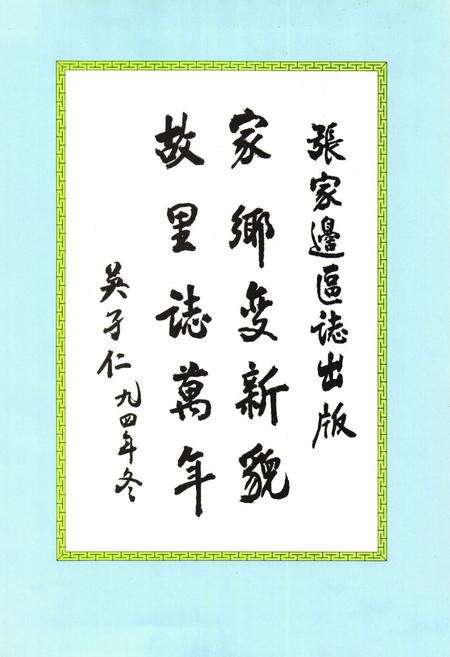 張家邊區誌出版
家鄉变新貌
故里誌萬年
吴子仁九四年冬